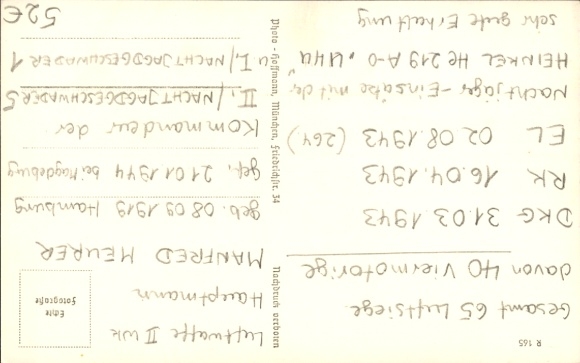 R 165
Gesamt 65 Luftsiege
davon 40 Viermotorige
DKG 31.03 1943
RK 16.04.1943
EL 02.08.1943 (264)
Nachtjäger-Einsätze mit der
HEINKEL He 219 A-0 „UHU"
sehr gute Erhaltung
Nachdruck verboten
Photo - Hoffmann, München, Friedrichstr. 34
Echte
Fotografie
Luftwaffe II WK
Hauptmann
MANFRED MEURER
geb. 08 09 1919 Hamburg
gef. 21 01 1944 bei Magdeburg
Kommandeur der
II./NACHTJAGDGESCHWADER 5
u I./NACHTJAGDGESCHWADER 1
52€